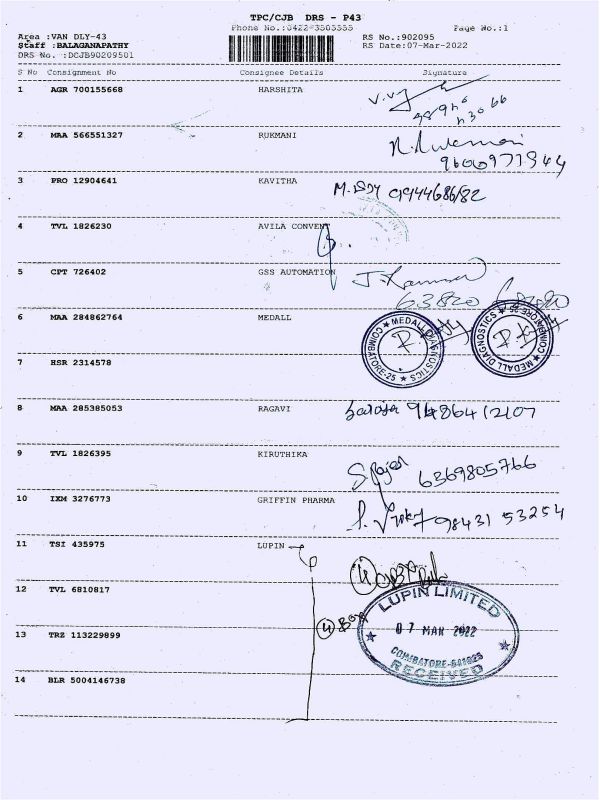 TPC/CJB DRS - P43
Phone No.:0422-3503555 Page No.:1
Area :VAN DLY-43 RS No.:902095
Staff :BALAGANAPATHY RS Date:07-Mar-2022
DRS No. :DCJB90209501
S No Consignment No Consignee Details Signature
1 AGR 700155668 HARSHITA
2 MAA 566551327 RUKMANI
3 PRO 12904641 KAVITHA
4 TVL 1826230 AVILA CONVENT
5 CPT 726402 GSS AUTOMATION
6 MAA 284862764 MEDALL
MEDALL DIAGNOSTICS COIMBATORE-25
MEDALL DIAGNOSTICS COIMBATORE-25
7 HSR 2314578
8 MAA 285385053 RAGAVI
9 TVL 1826395 KIRUTHIKA
6369805766
10 IXM 3276773 GRIFFIN PHARMA
98431 53254
11 TSI 435975 LUPIN
12 TVL 6810817
LUPIN LIMITED
07 MAR 2022
COIMBATORE-641025
RECEIVED
4 Box
13 TRZ 113229899
14 BLR 5004146738